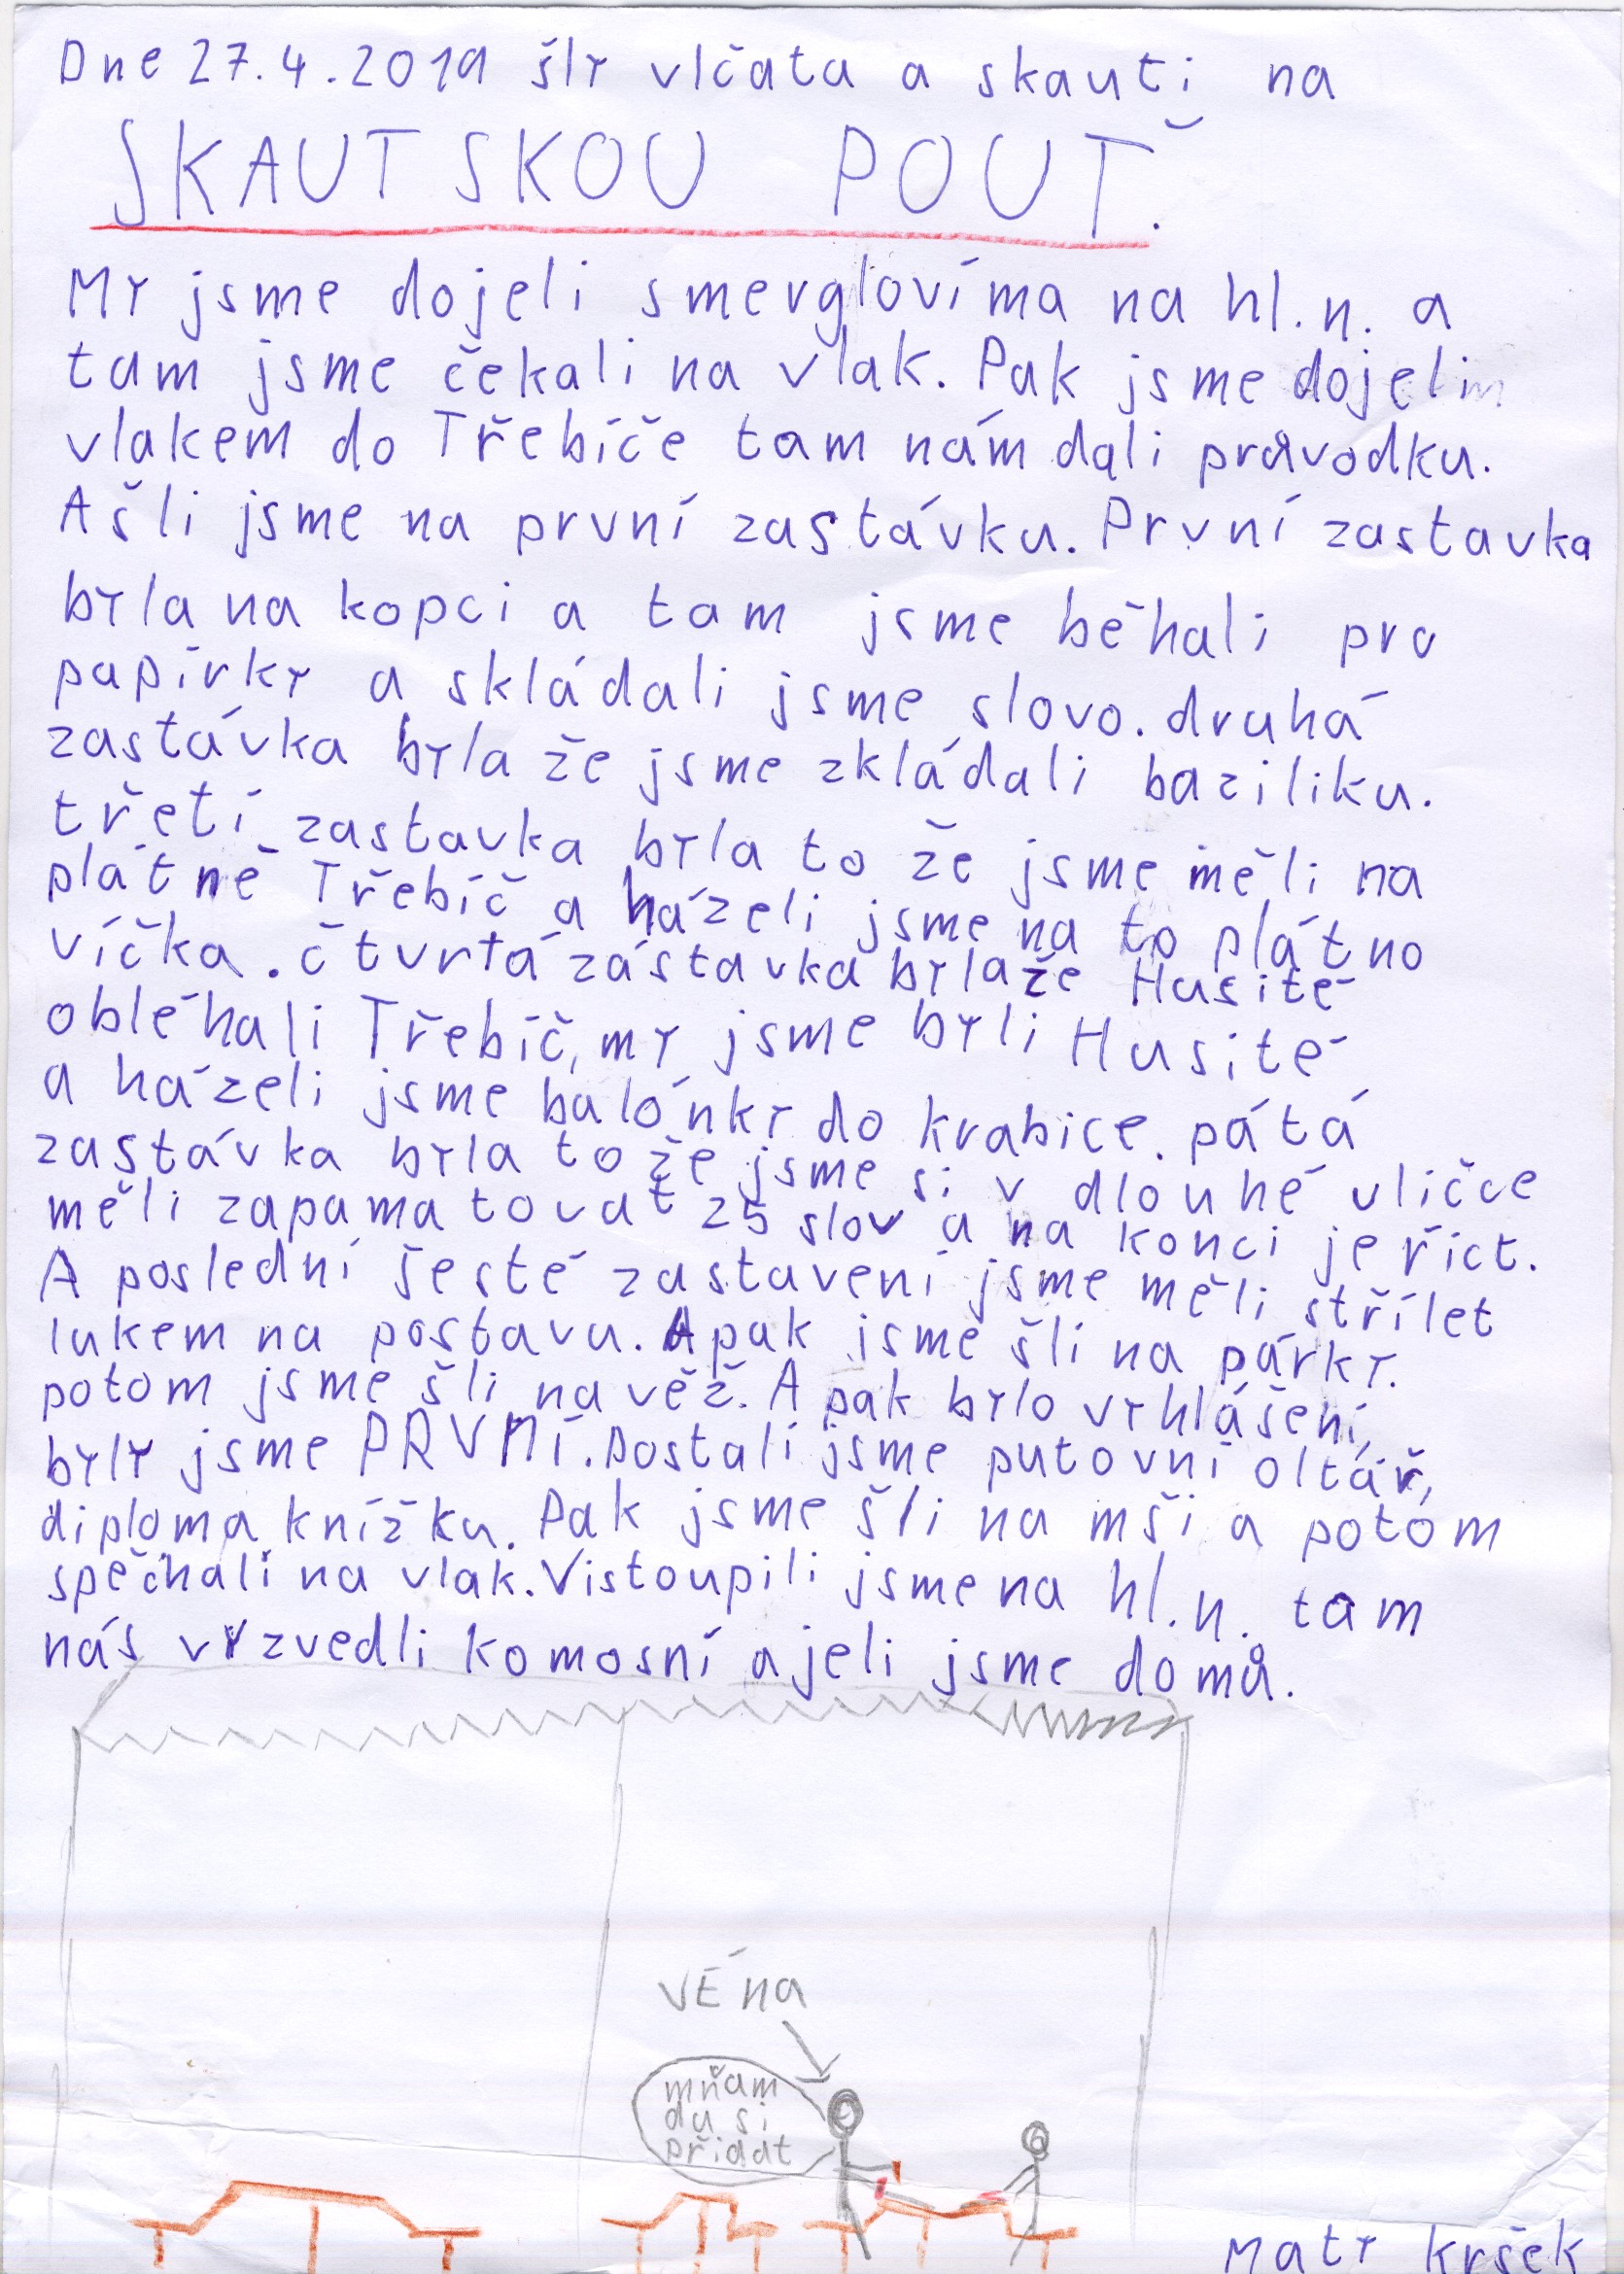 Dne 27.4.2019 šly vlčata a skauti na
SKAUTSKOU POUŤ.
My jsme dojeli smerglovíma na hl.n. a
tam jsme čekali na vlak. Pak jsme dojeli
vlakem do Třebíče tam nám dali průvodku.
A šli jsme na první zastávku. První zastavka
byla na kopci a tam jsme běhali pro
papírky a skládali jsme slovo. druhá
zastávka byla že jsme zkládali baziliku.
třetí zastavka byla to že jsme měli na
plátně Třebíč a házeli jsme na to plátno
víčka. čtvrtá zástavka byla že Husité
obléhali Třebíč, my jsme byli Husité
a házeli jsme balónky do krabice. pátá
zastávka byla to že jsme si v dlouhé uličce
měli zapamatovat 25 slov a na konci je říct.
A poslední šesté zastavení jsme měli střílet
lukem na postavu. A pak jsme šli na párky.
potom jsme šli na věž. A pak bylo vyhlášení,
byly jsme PRVNÍ. Dostali jsme putovní oltář,
diplom a knížku. Pak jsme šli na mši a potom
spěchali na vlak. Vistoupili jsme na hl.n. tam
nás vyzvedli komosní a jeli jsme domů.
VÉna
mňam
du si
přidat
Maty kršek